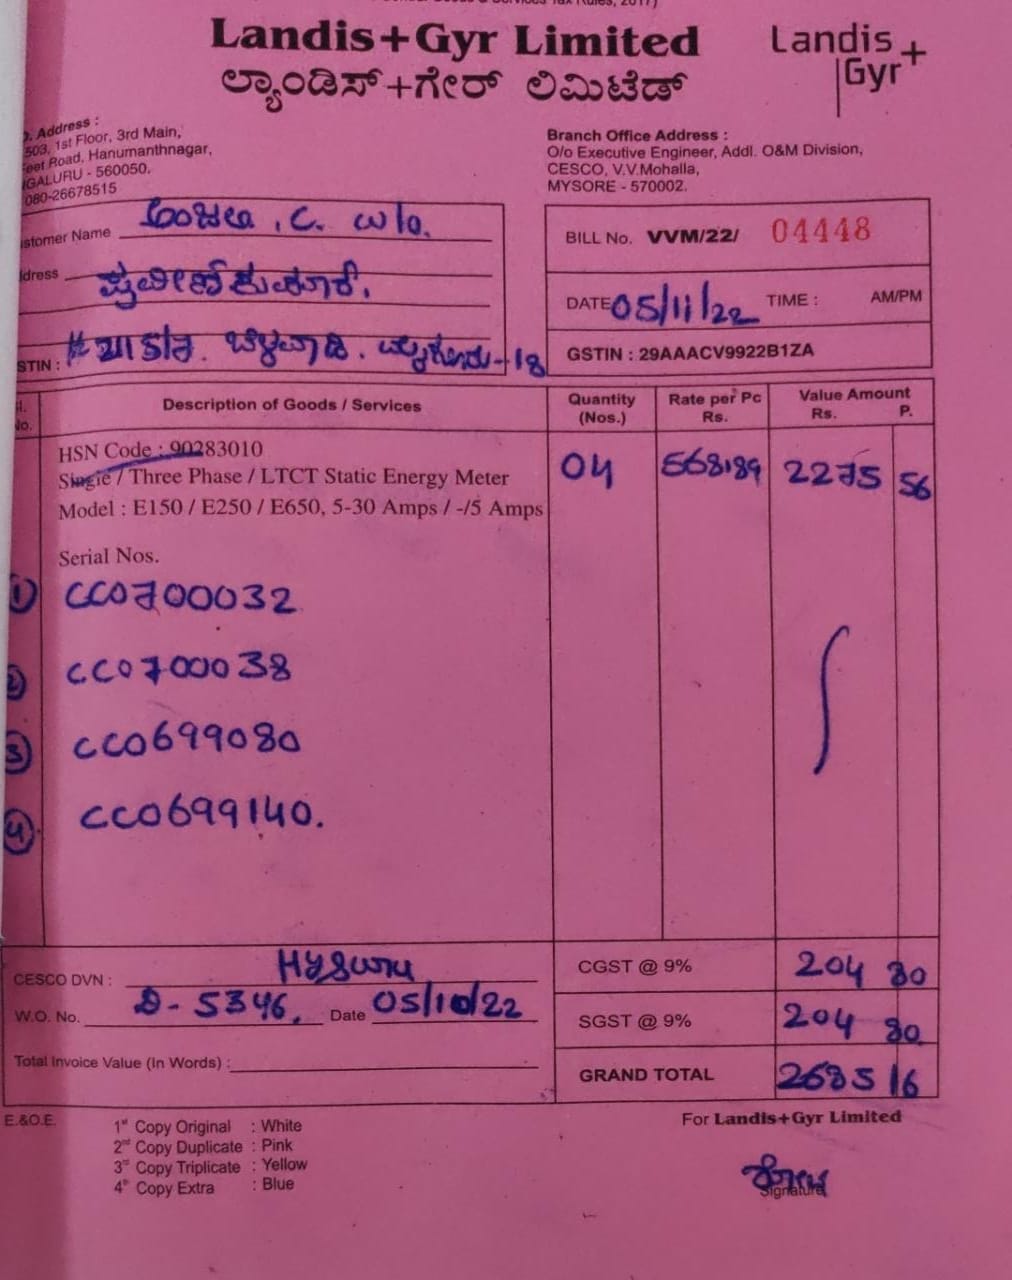 Landis+Gyr Limited
ಲ್ಯಾಂಡಿಸ್+ಗೇರ್ ಲಿಮಿಟೆಡ್
Landis+
Gyr
Address :
503, 1st Floor, 3rd Main,
Road, Hanumanthnagar,
GALURU - 560050.
080-26678515
Branch Office Address :
O/o Executive Engineer, Addl. O&M Division,
CESCO, V.V.Mohalla,
MYSORE - 570002.
stomer Name . C. W/o.
dress ಪ್ರವೀಣ್ ಕುಮಾರ್.
STIN : ಬೆಳವಾಡಿ. ಮೈಸೂರು-18
BILL No. VVM/22/ 04448
DATE 05/11/22 TIME : AM/PM
GSTIN : 29AAACV9922B1ZA
No. Description of Goods / Services Quantity (Nos.) Rate per Pc Rs. Value Amount Rs. P.
HSN Code : 90283010
Single / Three Phase / LTCT Static Energy Meter 04 568.89 2275 56
Model : E150 / E250 / E650, 5-30 Amps / -/5 Amps
Serial Nos.
1) CC0700032
2) CC0700038
3) CC0699080
4) CC0699140.
CESCO DVN :
W.O. No. D-5346. Date 05/10/22
Total Invoice Value (In Words) :
CGST @ 9% 204 80
SGST @ 9% 204 80
GRAND TOTAL 2685 16
E.&O.E.
1st Copy Original : White
2nd Copy Duplicate : Pink
3rd Copy Triplicate : Yellow
4th Copy Extra : Blue
For Landis+Gyr Limited
Signature